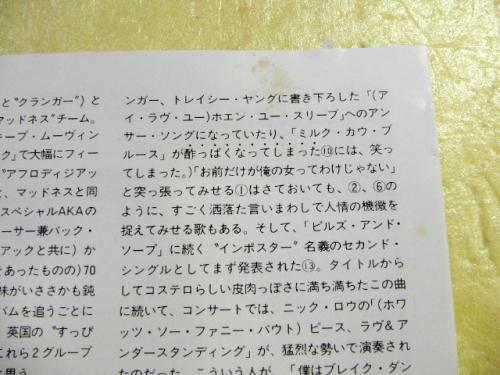 と“クランガー”）と
マッドネス”チーム。
キープ・ムーヴィン
ク』で大幅にフィー
“アフロディジアッ
と、マッドネスと同
スペシャルAKAの
ーサー兼バック・
アックと共に）か
そあったものの）70
味がいささかも鈍
バムを追うごとに
英国の“すっぴ
これら2グループ
ンガー、トレイシー・ヤングに書き下ろした「（ア
イ・ラヴ・ユー）ホエン・ユー・スリープ」へのアン
サー・ソングになっていたり、「ミルク・カウ・ブ
ルース」が酸っぱくなってしまった⑩には、笑っ
てしまった。）「お前だけが俺の女ってわけじゃない」
と突っ張ってみせる①はさておいても、②、⑥の
ように、すごく洒落た言いまわしで人情の機微を
捉えてみせる歌もある。そして、「ピルズ・アンド・
ソープ」に続く“インポスター”名義のセカンド・
シングルとしてまず発表された⑬。タイトルから
してコステロらしい皮肉っぽさに満ち満ちたこの曲
に続いて、コンサートでは、ニック・ロウの「（ホワ
ッツ・ソー・ファニー・バウト）ピース、ラヴ&ア
ンダースタンディング」が、猛烈な勢いで演奏さ
れたのだった。こういう人が、「僕はブレイク・ダン